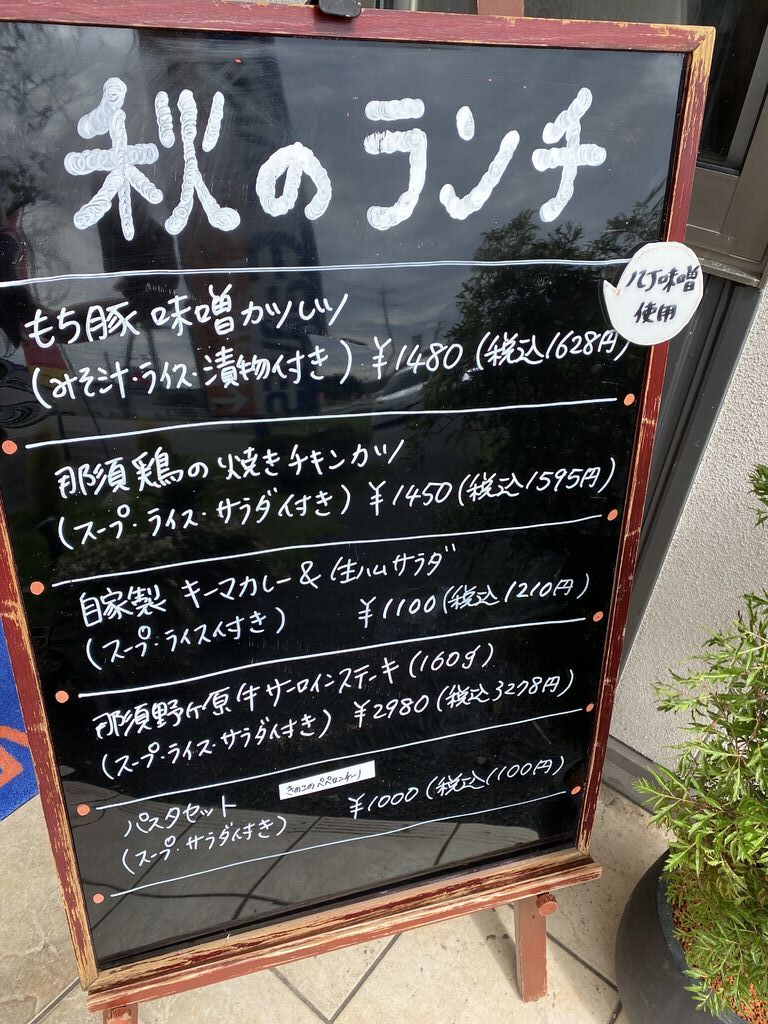 秋のランチ
八丁味噌
使用
もち豚 味噌カツレツ
(みそ汁・ライス・漬物付き) ¥1480 (税込1628円)
那須鶏の焼きチキンカツ
(スープ・ライス・サラダ付き) ¥1450 (税込1595円)
自家製 キーマカレー & 生ハムサラダ
(スープ・ライス付き) ¥1100 (税込1210円)
那須野ヶ原牛サーロインステーキ (160g)
(スープ・ライス・サラダ付き) ¥2980 (税込3278円)
パスタセット きのこのペペロンチーノ ¥1000 (税込1100円)
(スープ・サラダ付き)